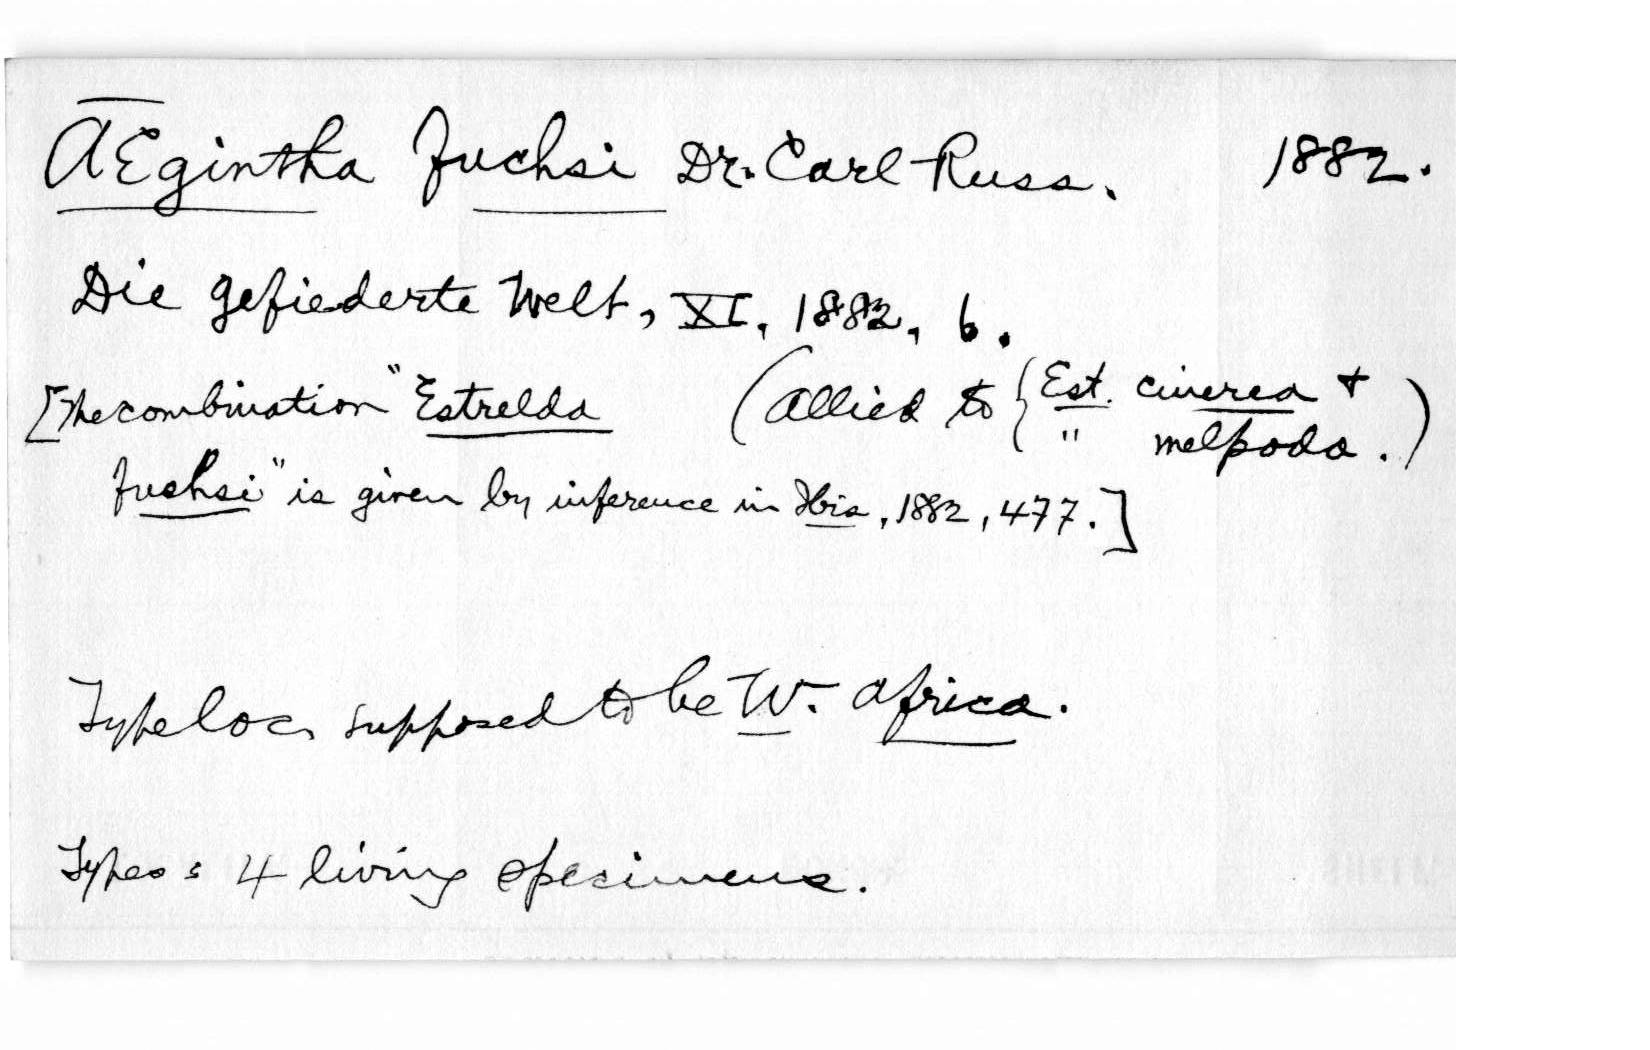 AEgintha fuchsi Dr. Carl Russ. 1882.
Die gefiederte Welt, XI, 1882, 6.
[The combination "Estrelda (Allied to { Est. cinerea +
" melpoda.)
fuchsi" is given by inference in Ibis, 1882, 477.]
Type loc. supposed to be W. Africa.
Types: 4 living specimens.